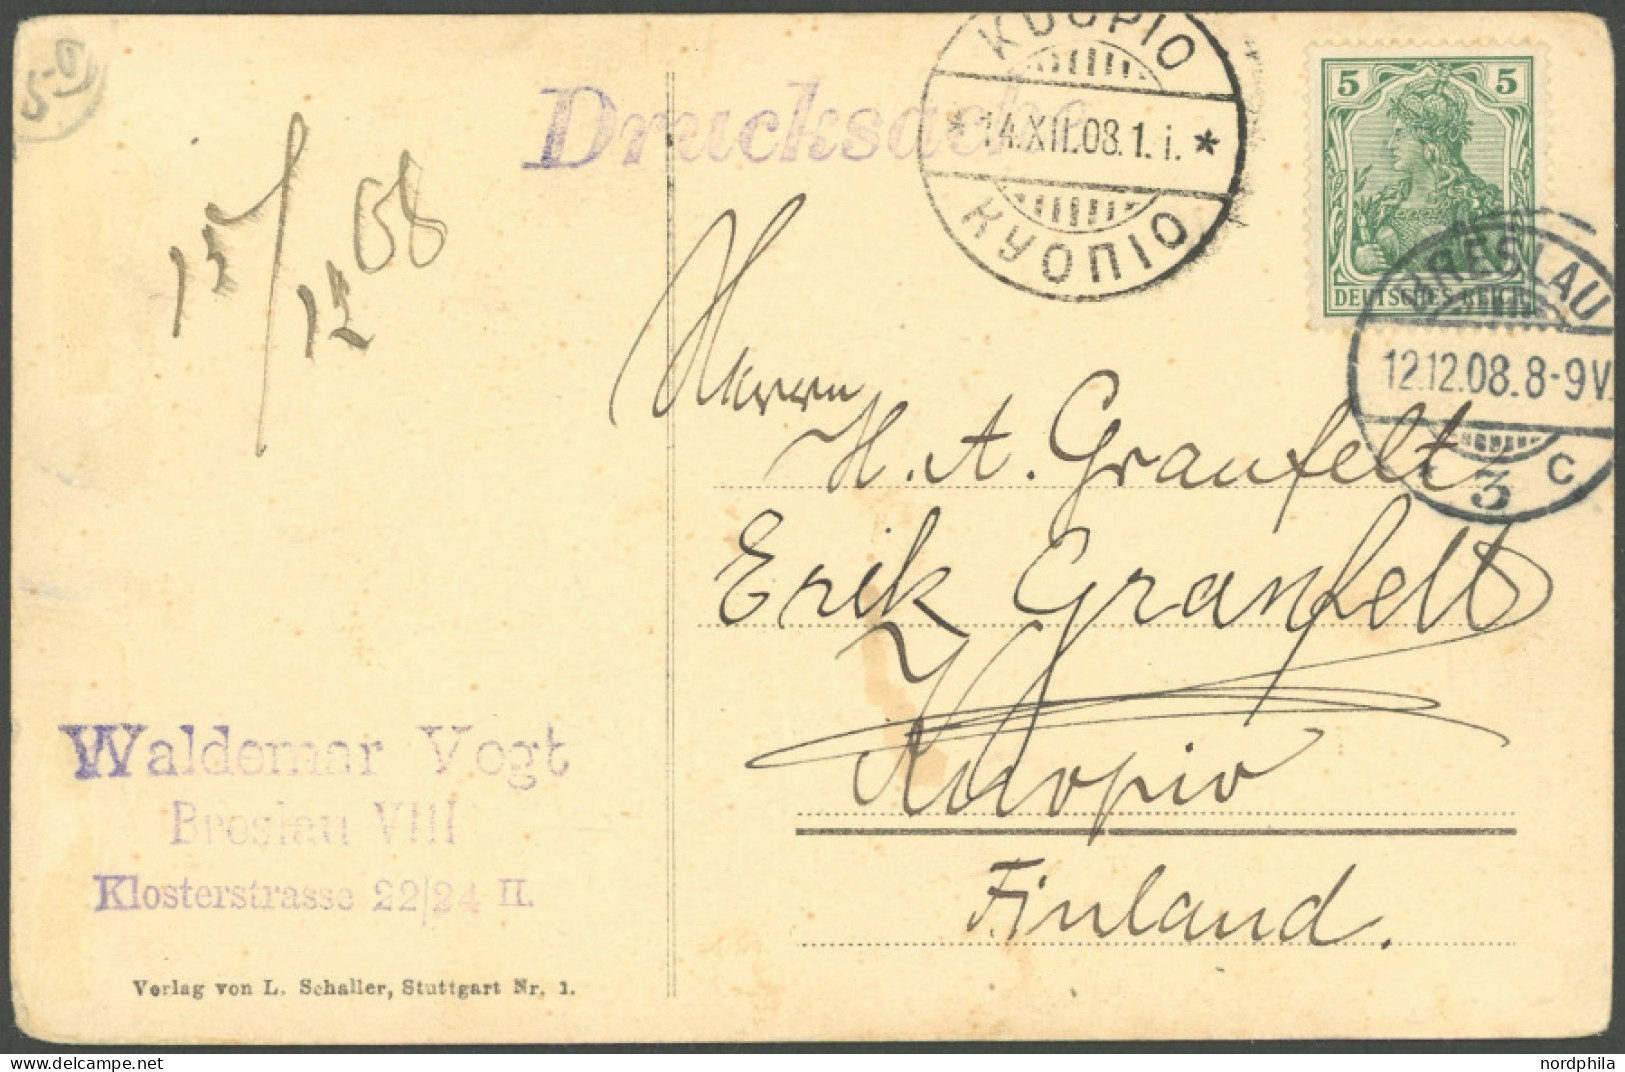 5-9
KUOPIO
5 5
Drucksache
* 14.XII.08.1.i. *
КУОПІО
DEUTSCHES REICH
15/12 08
BRESLAU
12.12.08.8-9V.
* 3 c
Herrn
H. A. Granfelt
Erik Granfelt
Kuopio
Finland.
Waldemar Vogt
Breslau VIII
Klosterstrasse 22/24 II.
Verlag von L. Schaller, Stuttgart Nr. 1.
nordphila